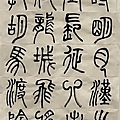 時明月漢
里長征人
龍城飛將
教胡馬渡陰